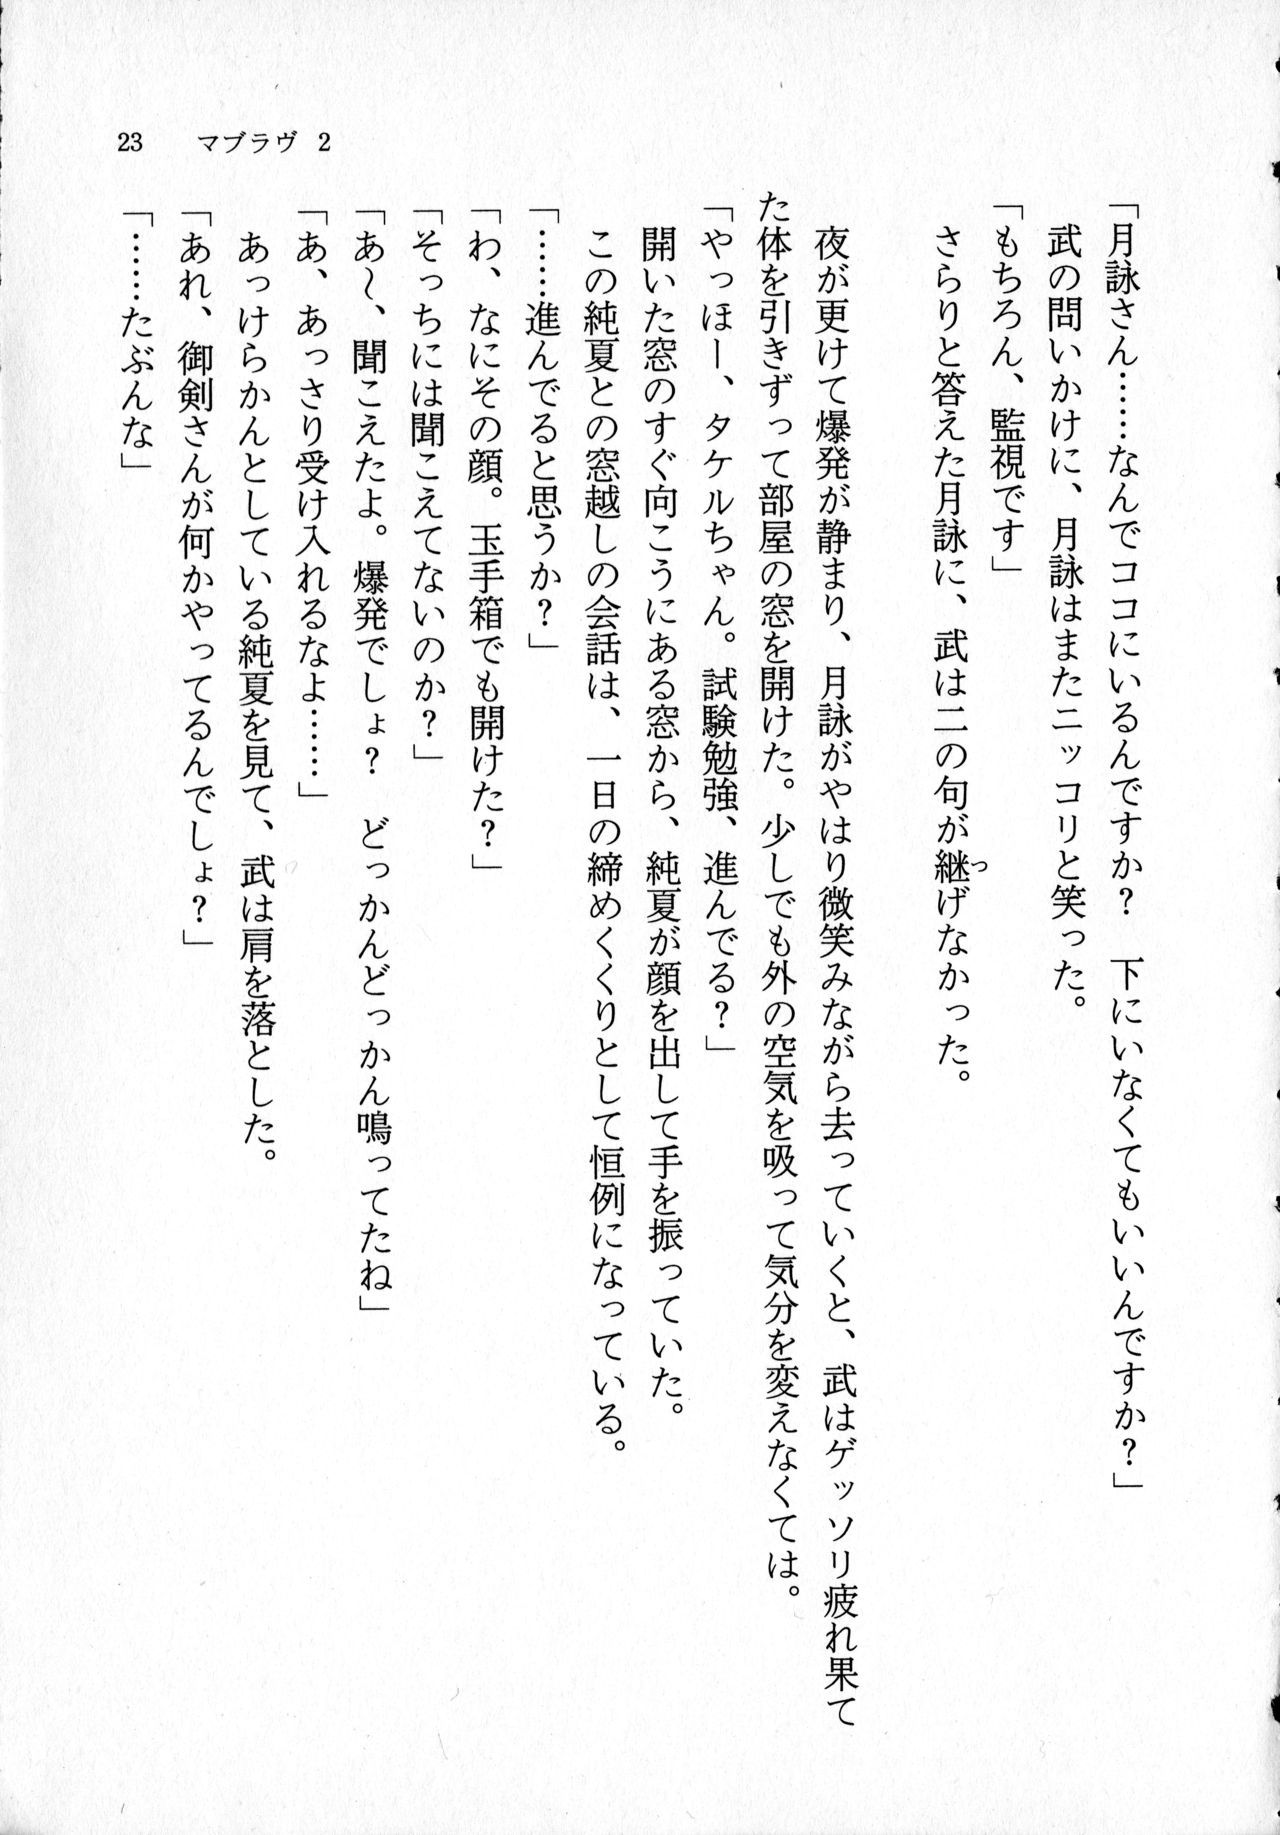 23　マブラヴ 2
「月詠さん……なんでココにいるんですか？　下にいなくてもいいんですか？」
　武の問いかけに、月詠はまたニッコリと笑った。
「もちろん、監視です」
　さらりと答えた月詠に、武は二の句が継げなかった。
つ
　夜が更けて爆発が静まり、月詠がやはり微笑みながら去っていくと、武はゲッソリ疲れ果て
た体を引きずって部屋の窓を開けた。少しでも外の空気を吸って気分を変えなくては。
「やっほー、タケルちゃん。試験勉強、進んでる？」
　開いた窓のすぐ向こうにある窓から、純夏が顔を出して手を振っていた。
　この純夏との窓越しの会話は、一日の締めくくりとして恒例になっている。
「……進んでると思うか？」
「わ、なにその顔。玉手箱でも開けた？」
「そっちには聞こえてないのか？」
「あ〜、聞こえたよ。爆発でしょ？　どっかんどっかん鳴ってたね」
「あ、あっさり受け入れるなよ……」
　あっけらかんとしている純夏を見て、武は肩を落とした。
「あれ、御剣さんが何かやってるんでしょ？」
「……たぶんな」